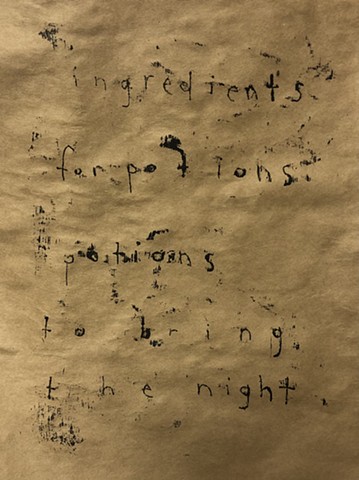 ingredients
for potions.
potions
to bring
the night.